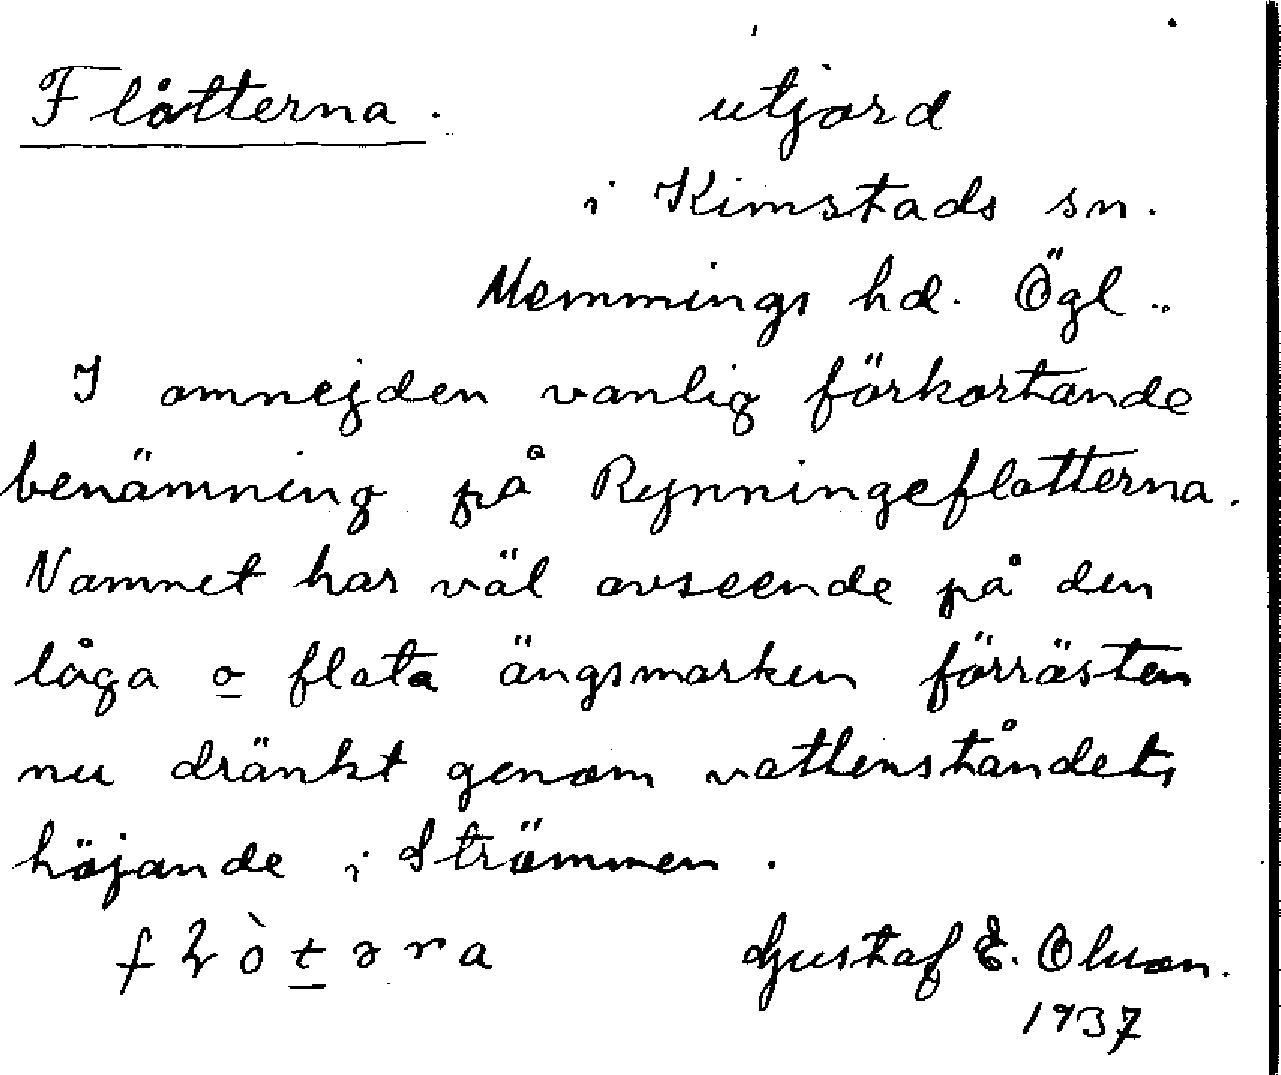 Flåtterna. utjord
i Kimstads sn.
Memmings hd. Ögl..
I omnejden vanlig förkortande
benämning på Rynningeflotterna.
Namnet har väl avseende på den
låga o flata ängsmarken förrästen
nu dränkt genom vattenståndets
höjande i Strömmen.
Gustaf E. Olson.
1937